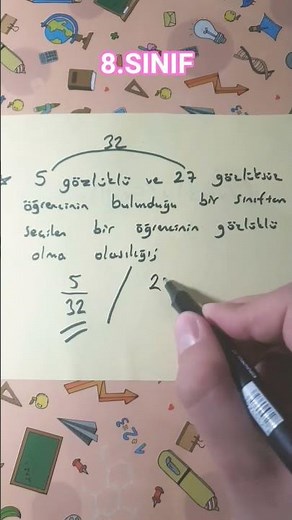 8.SINIF
32
5 gözlüklü ve 27 gözlüksüz
öğrencinin bulunduğu bir sınıftan
seçilen bir öğrencinin gözlüklü
olma olasılığı
5/32 / 2